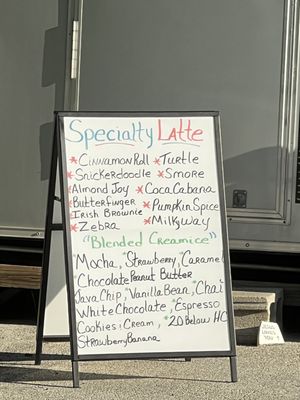 Specialty Latte
*Cinnamon Roll *Turtle
*Snickerdoodle *Smore
*Almond Joy *Coca Cabana
*Butterfinger *Pumpkin Spice
*Irish Brownie *Milkyway
*Zebra
"Blended Creamice"
*Mocha, *Strawberry, *Caramel
Chocolate Peanut Butter
Java Chip, *Vanilla Bean, *Chai
White Chocolate, *Espresso
Cookies & Cream, *20 Below HC
Strawberry Banana
JESUS
LOVES
YOU